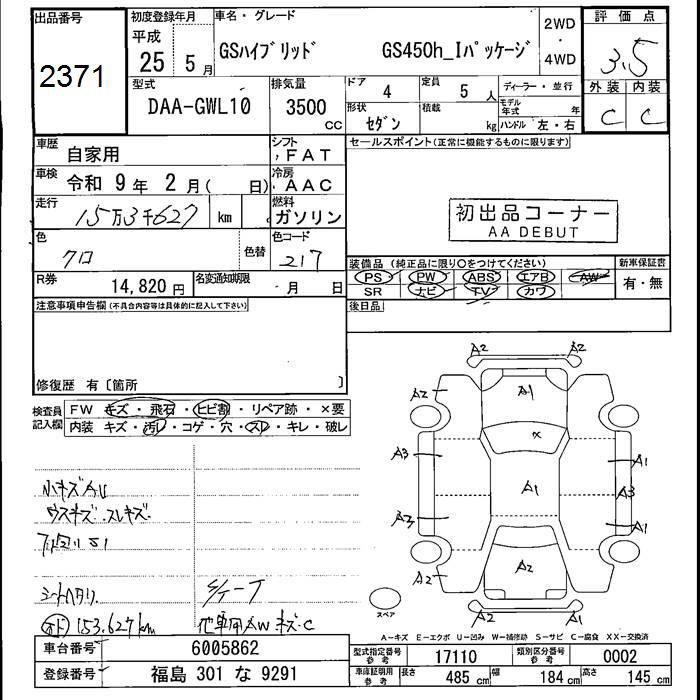 出品番号
2371
初度登録年月
平成
25 5月
車名・グレード
GSハイブリッド GS450h_Iパッケージ
2WD
・
4WD
評価点
3.5
外装 内装
C C
型式
DAA-GWL10
排気量
3500
cc
ドア 4
定員 5 人
ディーラー・並行
形状
セダン
積載
kg
モデル年式 年
ハンドル 左・右
車歴 自家用
シフト
FAT
車検 令和 9年 2月( 日)
冷房
AAC
走行 15万3千627 km
燃料
ガソリン
色 クロ
色替
色コード
217
R券 14,820円
名変通知期限 月 日
セールスポイント(正常に機能するものに限ります)
初出品コーナー
AA DEBUT
装備品(純正品に限り○をつけてください)
PS PW ABS エアB AW
SR ナビ TV カワ
新車保証書
有・無
後日品
注意事項申告欄(不具合内容等は具体的に記入して下さい)
修復歴 有〔箇所 〕
検査員記入欄
FW キズ・飛石・ヒビ割・リペア跡・×要
内装 キズ・汚レ・コゲ・穴・スレ・キレ・破レ
小キズAU
ウスキズ・スレキズ
シートヘタリ
153,627km
他車用AWキズ・C
A2 A2
A2 A1
×
A3 A1
A1 A3
A3 A1
A2 A2
A2 A2
スペア
A-キズ E-エクボ U-凹み W-補修跡 S-サビ C-腐食 XX-交換済
車台番号 6005862
登録番号 福島 301 な 9291
型式指定番号 参考 17110
類別区分番号 参考 0002
車庫証明用 参考 長さ 485 cm 幅 184 cm 高さ 145 cm